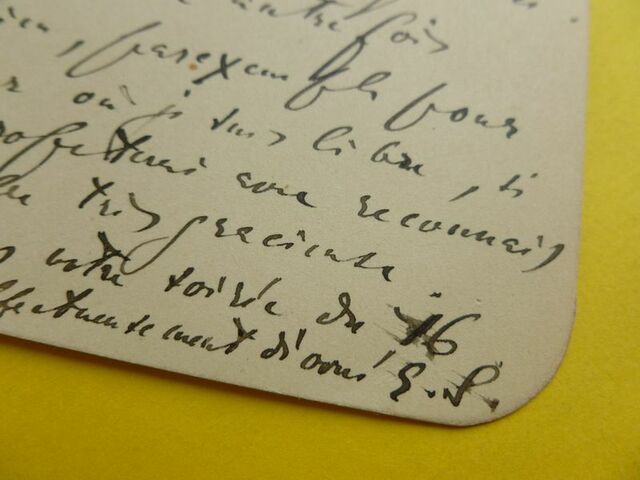 autre fois
, par exemple pour
où je suis libre, si
avec reconnais
très gracieuse
votre soirée du 16
affectueusement à vous G.S.